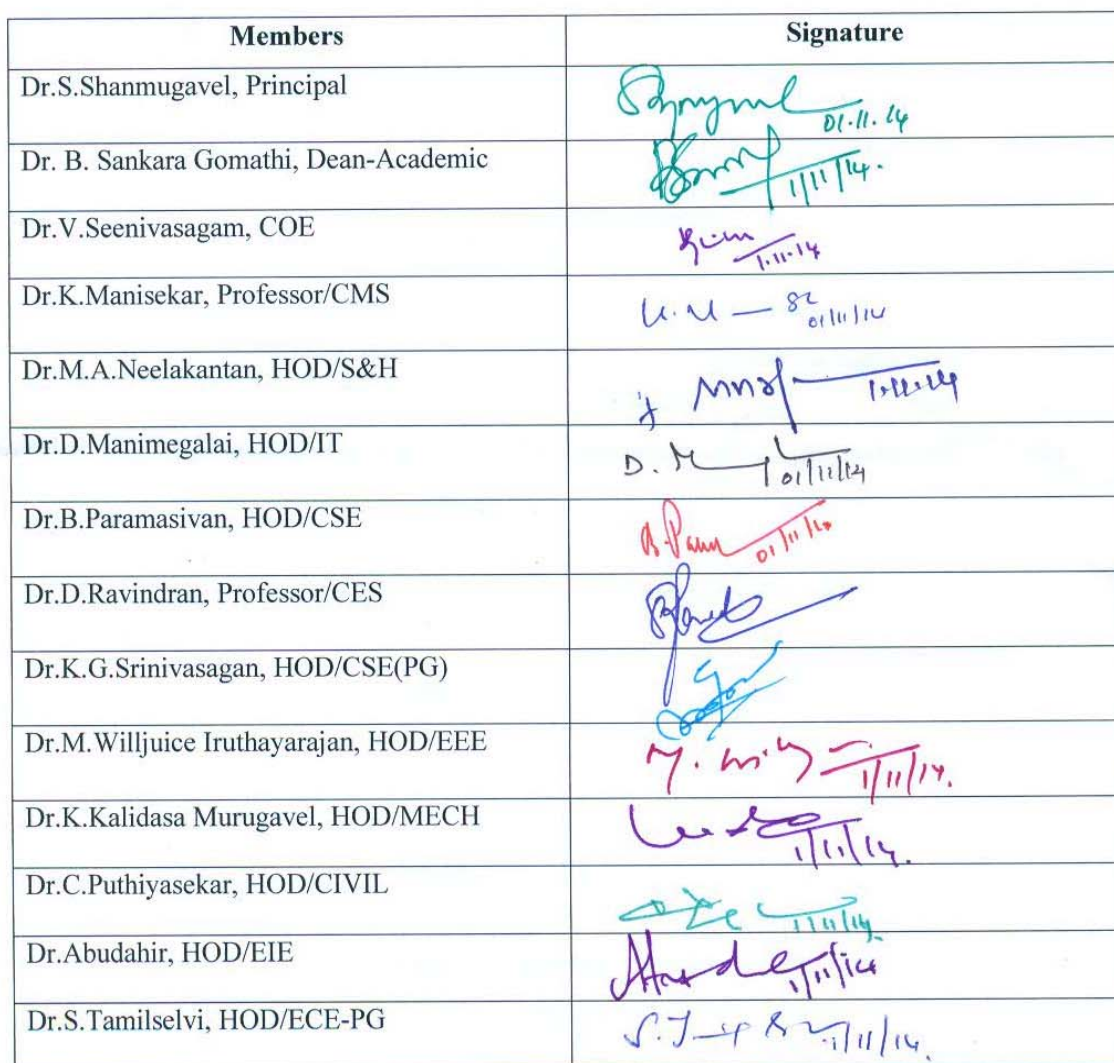 Members Signature
Dr.S.Shanmugavel, Principal
01.11.14
Dr. B. Sankara Gomathi, Dean-Academic
1/11/14.
Dr.V.Seenivasagam, COE
1.11.14
Dr.K.Manisekar, Professor/CMS
01/11/14
Dr.M.A.Neelakantan, HOD/S&H
1.11.14
Dr.D.Manimegalai, HOD/IT
D. M 01/11/14
Dr.B.Paramasivan, HOD/CSE
01/11/14
Dr.D.Ravindran, Professor/CES
Dr.K.G.Srinivasagan, HOD/CSE(PG)
Dr.M.Willjuice Iruthayarajan, HOD/EEE
1/11/14.
Dr.K.Kalidasa Murugavel, HOD/MECH
1/11/14.
Dr.C.Puthiyasekar, HOD/CIVIL
1/11/14.
Dr.Abudahir, HOD/EIE
1/11/14
Dr.S.Tamilselvi, HOD/ECE-PG
1/11/14.